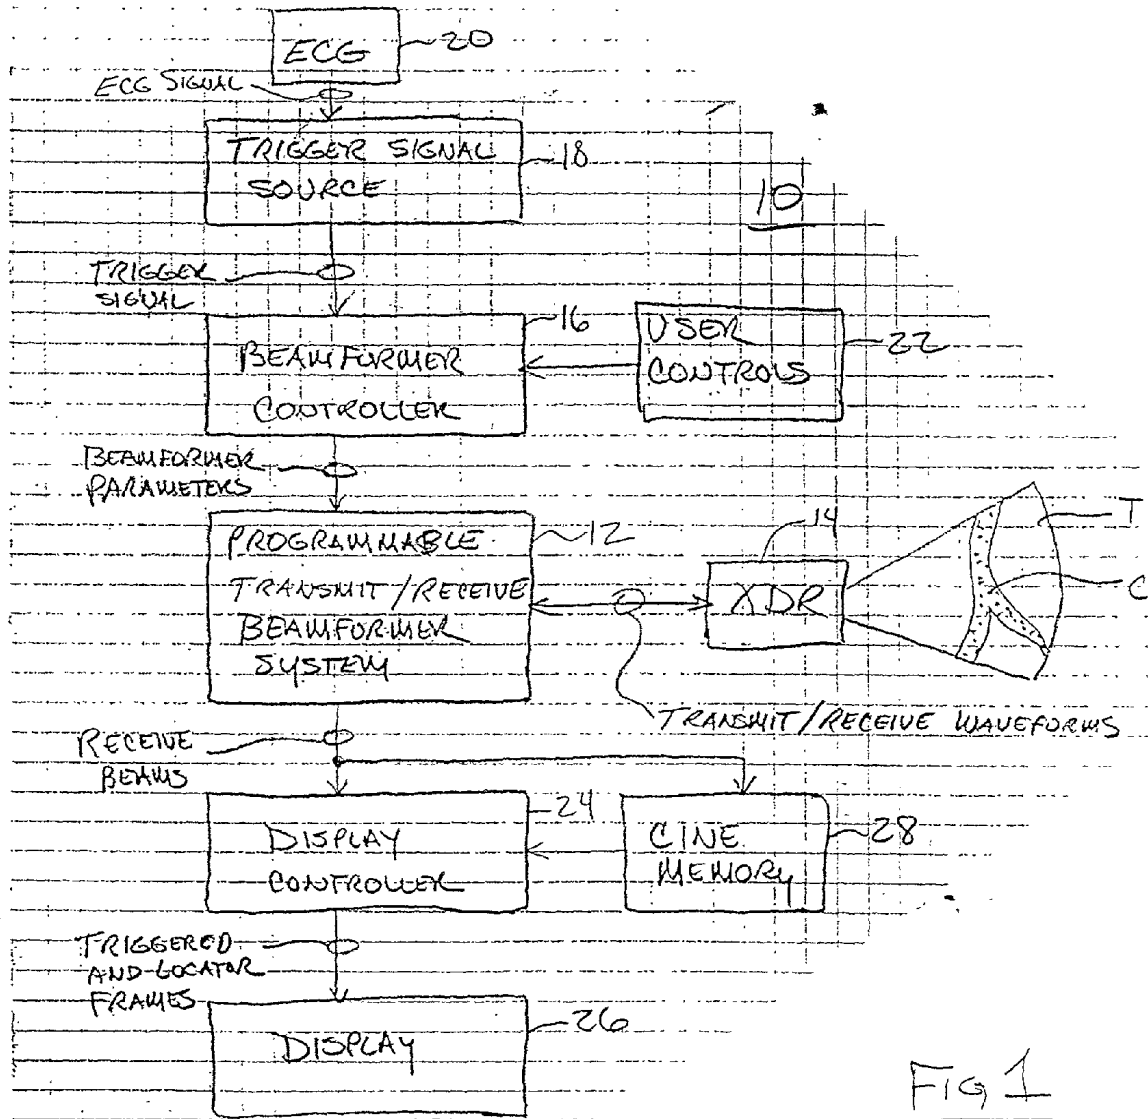 ECG
20
ECG SIGNAL
TRIGGER SIGNAL
SOURCE
18
10
TRIGGER
SIGNAL
BEAMFORMER
CONTROLLER
16
USER
CONTROLS
22
BEAMFORMER
PARAMETERS
PROGRAMMABLE
TRANSMIT/RECEIVE
BEAMFORMER
SYSTEM
12
14
XDR
T
C
TRANSMIT/RECEIVE WAVEFORMS
RECEIVE
BEAMS
DISPLAY
CONTROLLER
24
CINE
MEMORY
28
TRIGGERED
AND-LOCATOR
FRAMES
DISPLAY
26
FIG 1